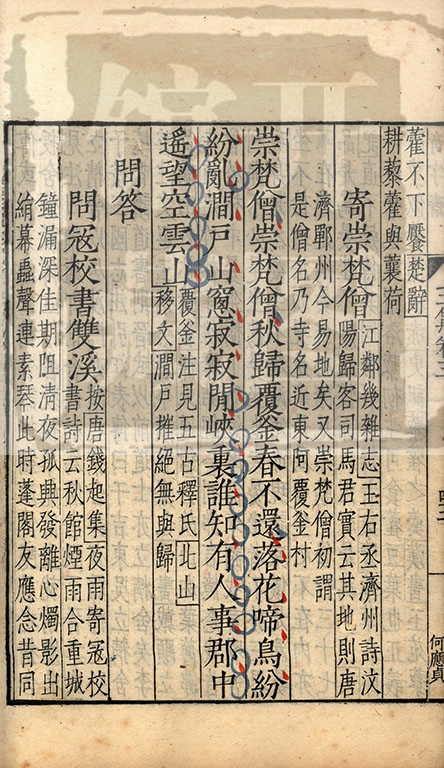 藿不下饜楚辭
耕藜藿與蘘荷
寄崇梵僧
江鄰幾雜志王右丞濟州詩汶
陽歸客司馬君實云其地則唐
濟鄆州今易地矣又崇梵僧初謂
是僧名乃寺名近東阿覆釜村
崇梵僧崇梵僧秋歸覆釜春不還落花啼鳥紛
紛亂澗戶山窻寂寂閒峽裏誰知有人事郡中
遥望空雲山
覆釜注見五古釋氏北山
移文澗戶摧絕無與歸
問答
問冦校書雙溪
按唐錢起集夜雨寄冦校
書詩云秋館煙雨合重城
鐘漏深佳期阻清夜孤興發離心燭影出
綃幕蟲聲連素琴此時蓬閣友應念昔同
何應貞